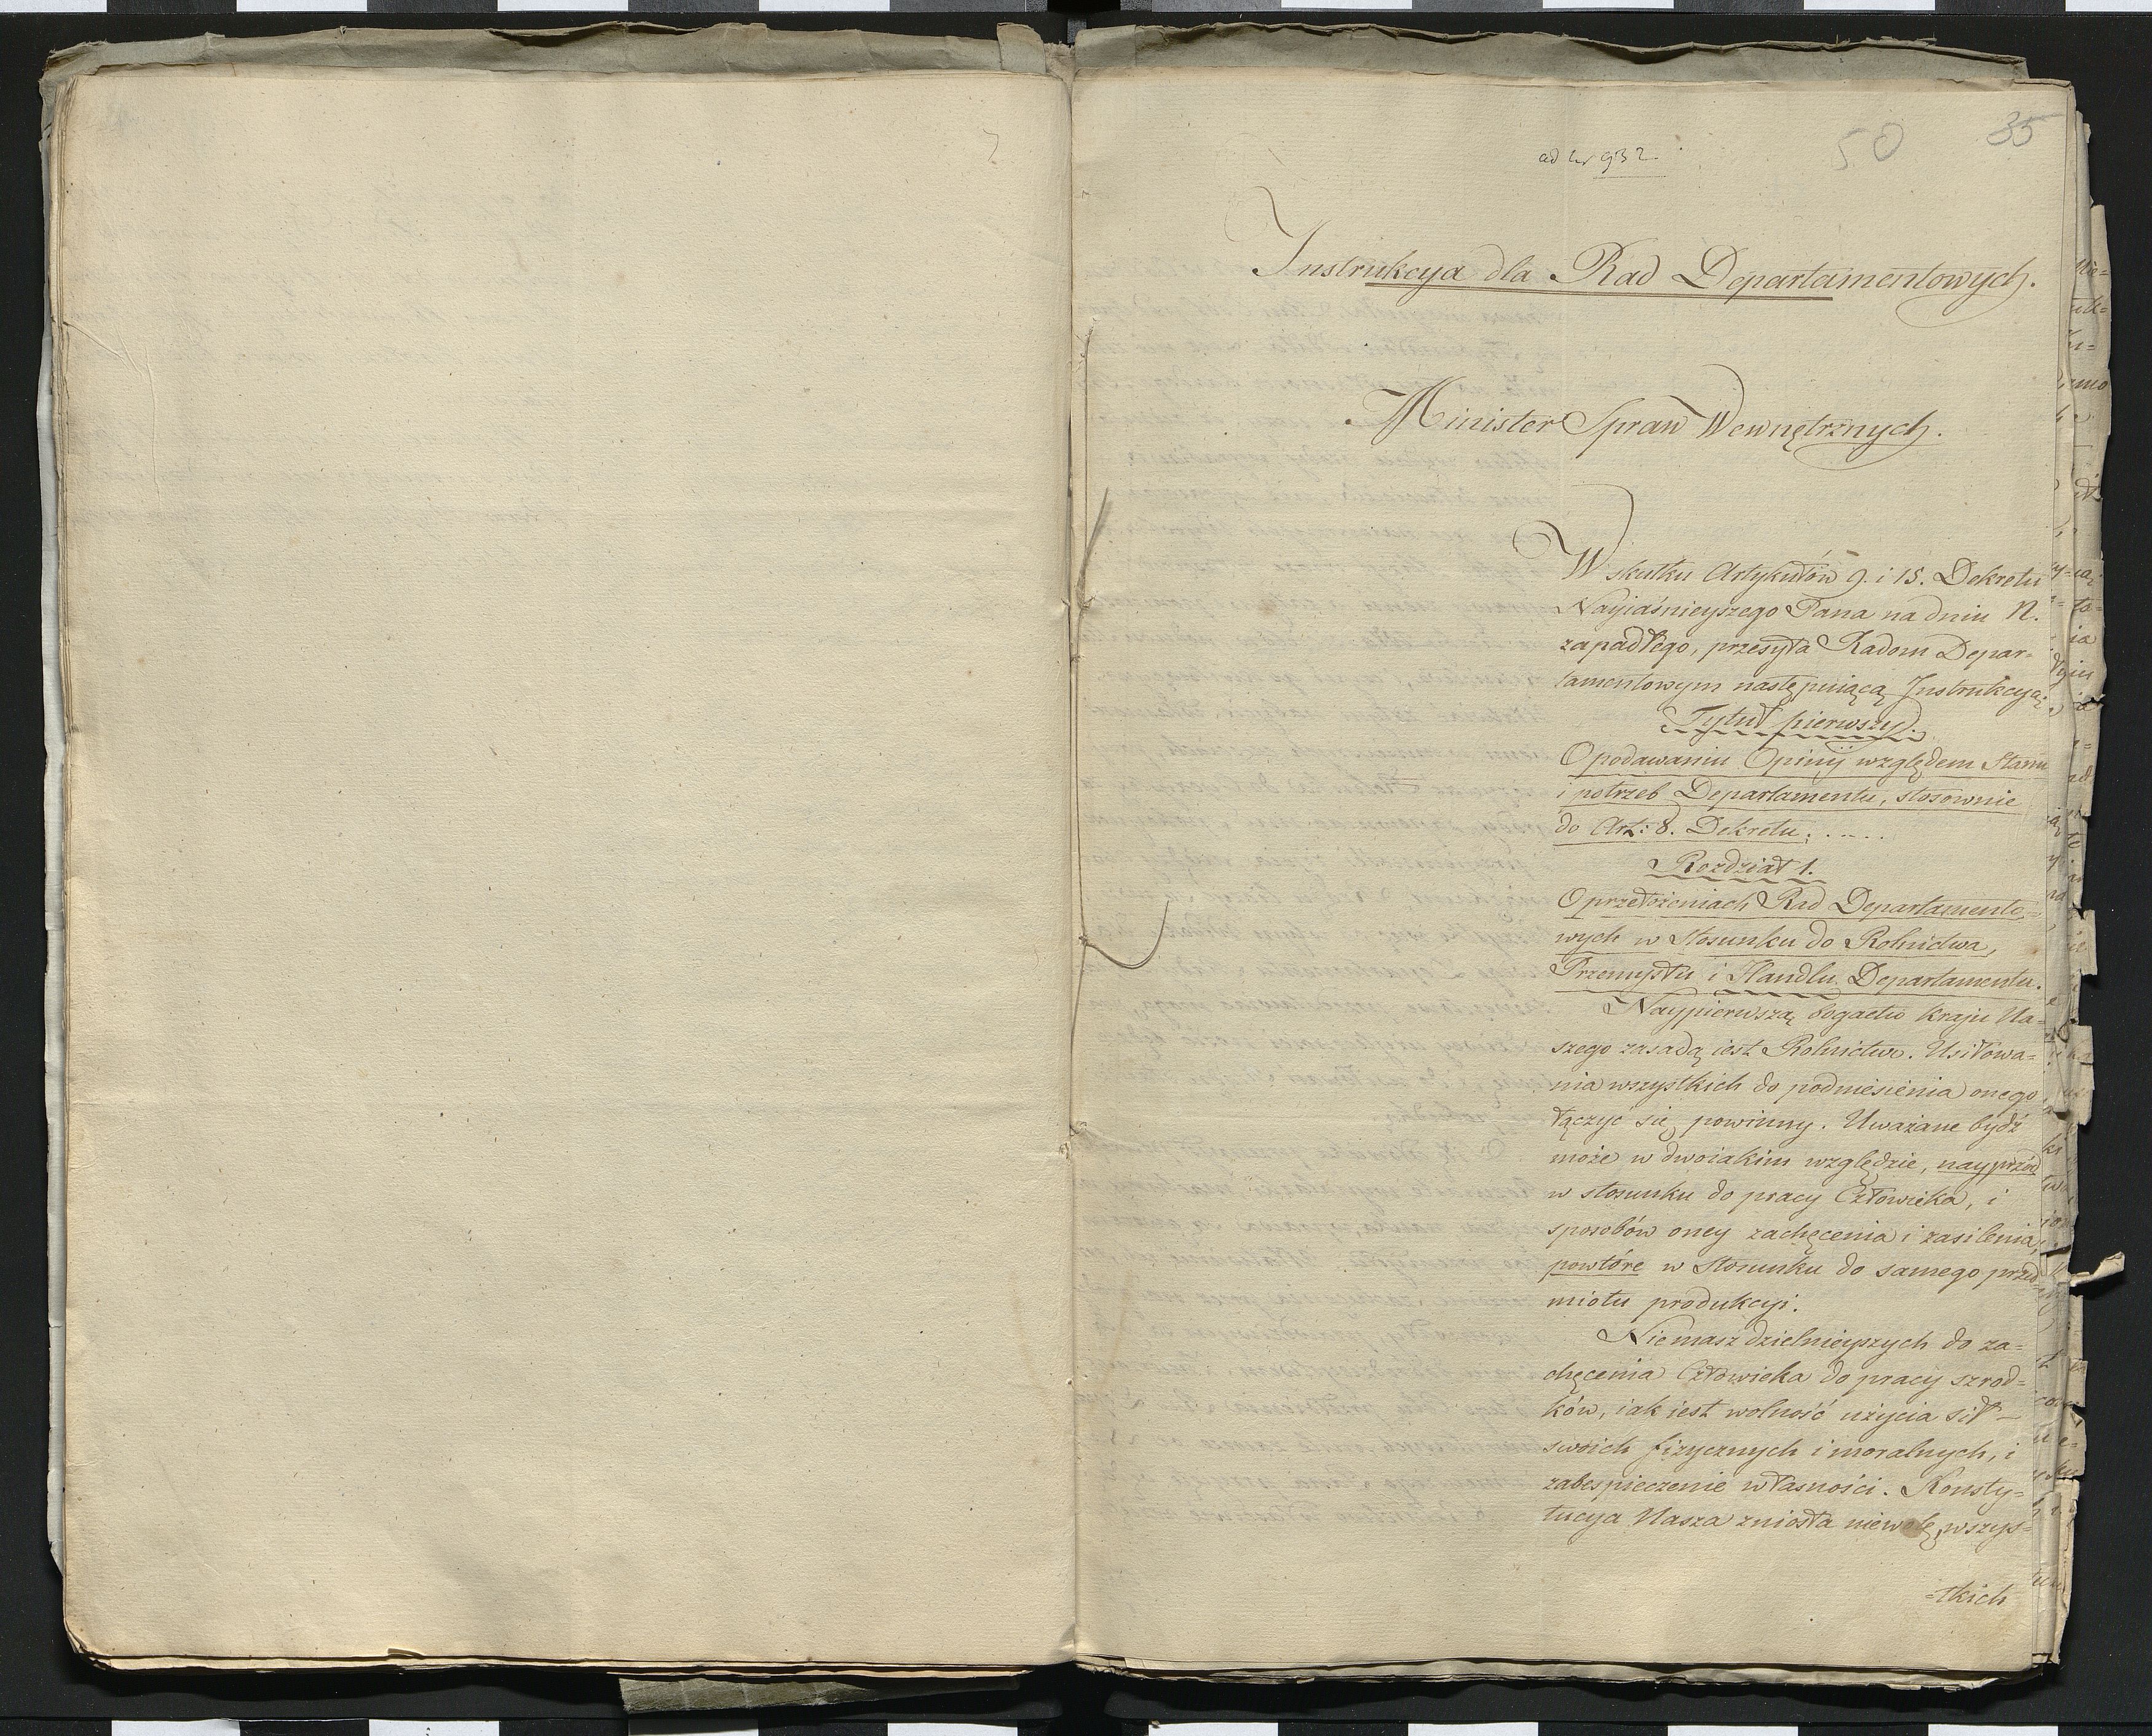 ad Nr 932.
50
35
Instrukcya dla Rad Departamentowych.
Minister Spraw Wewnętrznych.
W skutku Artykułów 9. i 15. Dekretu
Nayiaśnieyszego Pana na dniu N.
zapadłego, przesyła Radom Depar=
tamentowym następuiącą Instrukcyą;
Tytuł pierwszy.
O podawaniu Opinij względem Stanu
i potrzeb Departamentu, stosownie
do Art: 8. Dekretu.....
Rozdział 1.
O przełożeniach Rad Departamento=
wych w Stosunku do Rolnictwa,
Przemysłu i Handlu Departamentu.
Naypierwszą bogactw Kraju Na=
szego zasadą iest Rolnictwo. Usiłowa=
nia wszystkich do podniesienia onego
łączyć się powinny. Uważane bydź
może w dwoiakim względzie, nayprzód
w stosunku do pracy Człowieka, i
sposobów oney zachęcenia i zasilenia,
powtóre w Stosunku do samego przed=
miotu produkcyi.
Nie masz dzielnieyszych do za=
chęcenia Człowieka do pracy szrod=
ków, iak iest wolność użycia sił
swoich fizycznych i moralnych, i
zabespieczenie własności. Konsty=
tucya Nasza zniosła niewolę, wszys=
=tkich